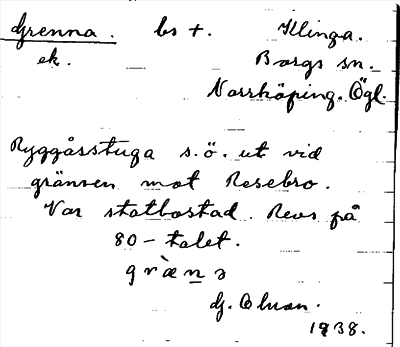 Grenna. bs +. Klinga.
ek. Borgs sn.
Norrköping. Ögl.
Ryggåsstuga s.ö. ut vid
gränsen mot Resebro.
Var statbostad. Revs på
80-talet.
grὰnə
G. Ohson.
1938.